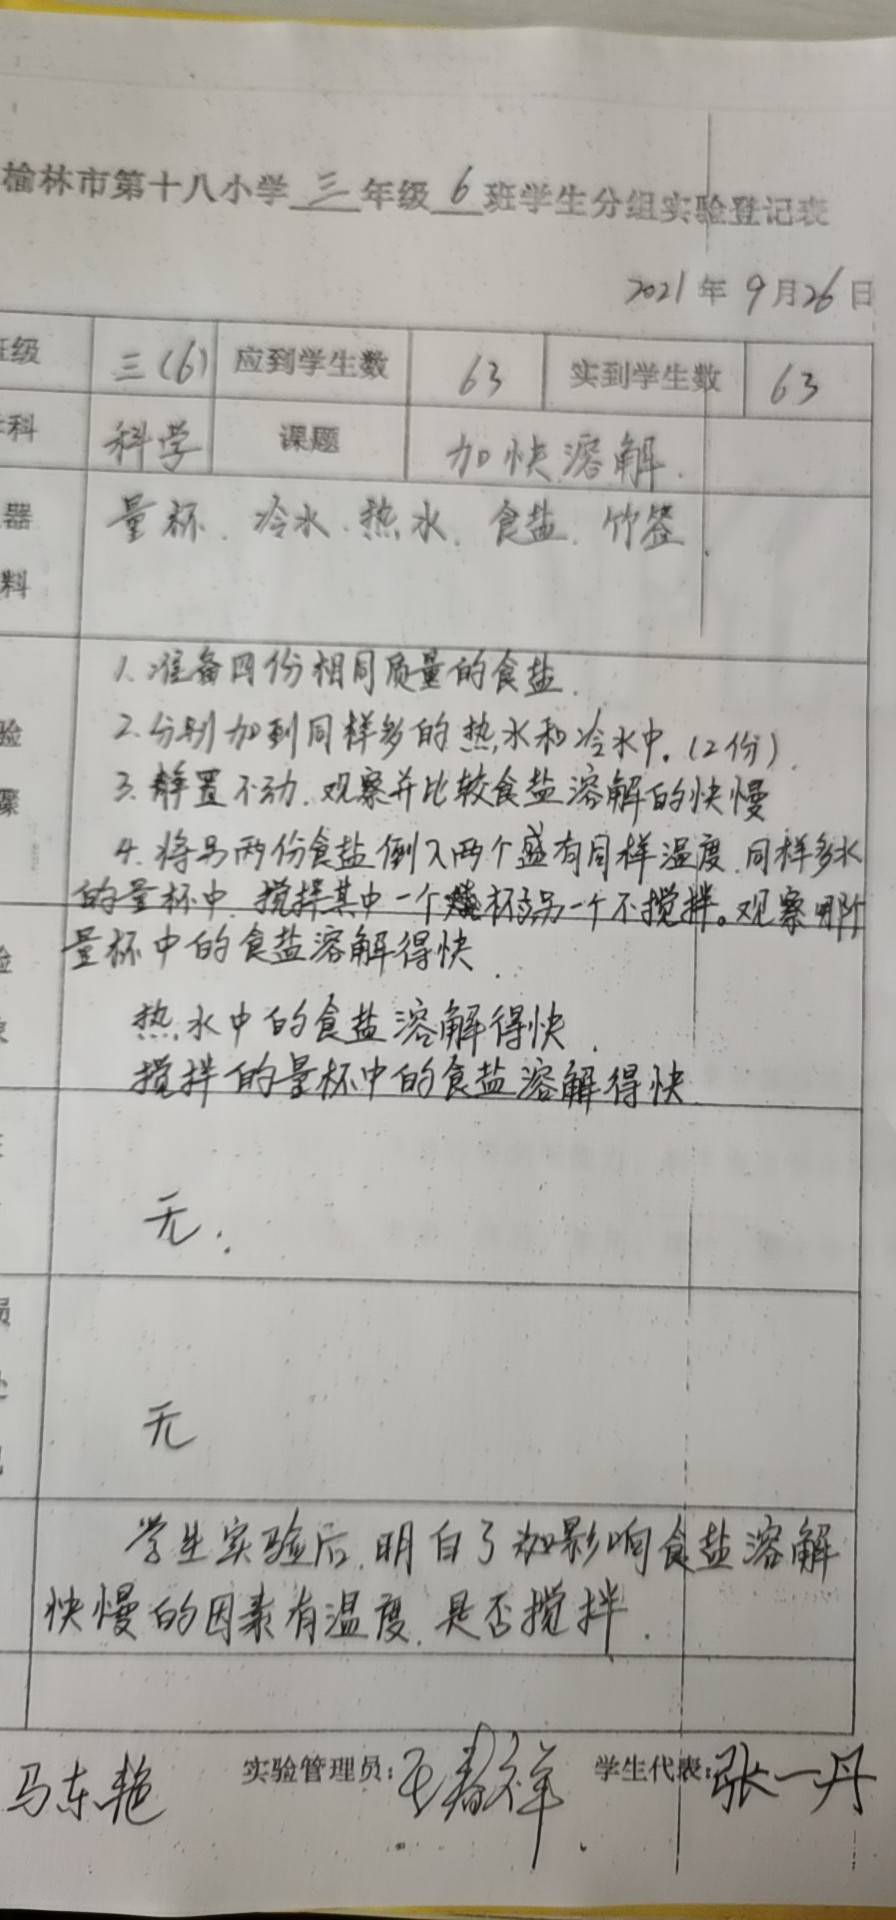 榆林市第十八小学 三 年级 6 班学生分组实验登记表
2021年9月26日
级 三(6) 应到学生数 63 实到学生数 63
科 科学 课题 加快溶解.
器 量杯、冷水、热水、食盐、竹签.
料
1.准备四份相同质量的食盐.
验 2.分别加到同样多的热水和冷水中.(2份).
骤 3.静置不动.观察并比较食盐溶解的快慢
4.将另两份食盐倒入两个盛有同样温度.同样多水
的量杯中.搅拌其中一个 杯 另一个不搅拌。观察哪个
量杯中的食盐溶解得快.
热水中的食盐溶解得快.
搅拌的量杯中的食盐溶解得快.
无.
员
无
学生实验后.明白了 影响食盐溶解
快慢的因素有温度.是否搅拌.
马东艳 实验管理员: 学生代表:张一丹